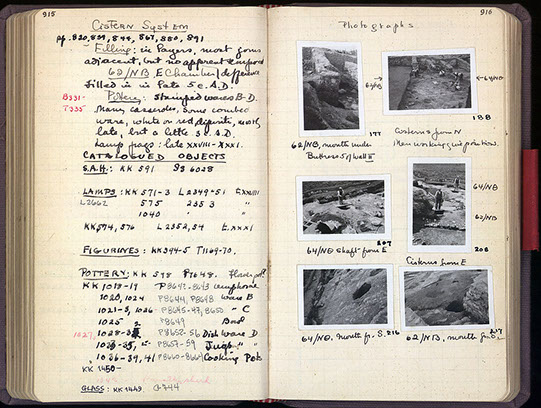 915
Cistern System
pp. 820, 839, 844, 867, 880, 891
Filling: in layers, most joins
adjacent, but no apparent
62/NB E Chamber
filled in in late 5 c. A.D.
B331- Pottery: Stamped wares B-D.
T335 Many casseroles, some combed
ware, white or red deposits, mostly
late, but a little 5 c. A.D.
Lamp frags: late XXVIII-XXXI.
CATALOGUED OBJECTS
S.A.H: KK 591 S 6028
LAMPS: KK 571-3 L2349-51 XXVIII
L2662 575 2353 "
1040 "
KK 574, 576 L2352, 54 XXXI
FIGURINES: KK 344-5 T1169-70.
POTTERY: KK 598 P7648.
KK 1018-19 P8642-8643 amphorae
1020, 1024 P8644, P8648 ware B
1021-3, 1026 P8645-47, 8650 " C
1025 P8649 Bowl
1027, 1028- P8652-56 Dish ware D
P8657-59 Jugs
1036-39, 41 P8660-866 Cooking Pots
KK 1450-
GLASS: KK 1449 G-344
916
Photographs
62/NB
177
62/NB, mouth under
Buttress 5 / Wall II
← 64/NB
188
Cisterns from N
Men working give positions.
207
64/NB Shaft from E
64/NB
62/NB
208
Cisterns from E
64/NB, mouth fr. S. 216
62/NB, mouth fr. 217